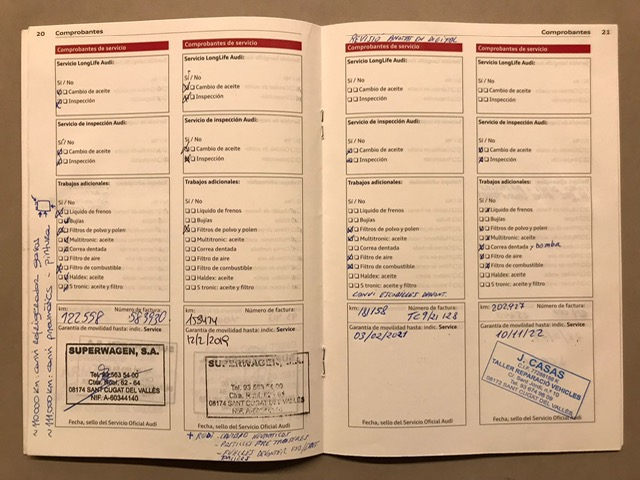 20 Comprobantes
Comprobantes de servicio
Servicio LongLife Audi:
Sí / No
Cambio de aceite
Inspección
Servicio de inspección Audi:
Sí / No
Cambio de aceite
Inspección
Trabajos adicionales:
Líquido de frenos
Bujías
Filtros de polvo y polen
Multitronic: aceite
Correa dentada
Filtro de aire
Filtro de combustible
Haldex: aceite
S tronic: aceite y filtro
km: Número de factura:
122.558
Garantía de movilidad hasta: indic. Service
SUPERWAGEN, S.A.
Tel. 93 563 54 00
Ctra. Rubí, 62 - 64
08174 SANT CUGAT DEL VALLÈS
NIF. A-60344140
Fecha, sello del Servicio Oficial Audi
~ 110000 km canvi refrigerador gasos
~ 111000 km: canvi pneumàtics - pintura
Comprobantes de servicio
Servicio LongLife Audi:
Sí / No
Cambio de aceite
Inspección
Servicio de inspección Audi:
Sí / No
Cambio de aceite
Inspección
Trabajos adicionales:
Líquido de frenos
Bujías
Filtros de polvo y polen
Multitronic: aceite
Correa dentada
Filtro de aire
Filtro de combustible
Haldex: aceite
S tronic: aceite y filtro
km: Número de factura:
Garantía de movilidad hasta: indic. Service
12/2/2019
SUPERWAGEN, S.A.
Tel. 93 563 54 00
Ctra. Rubí, 62 - 64
08174 SANT CUGAT DEL VALLÈS
Fecha, sello del Servicio Oficial Audi
Comprobantes 21
REVISIO
Comprobantes de servicio
Servicio LongLife Audi:
Sí / No
Cambio de aceite
Inspección
Servicio de inspección Audi:
Sí / No
Cambio de aceite
Inspección
Trabajos adicionales:
Líquido de frenos
Bujías
Filtros de polvo y polen
Multitronic: aceite
Correa dentada
Filtro de aire
Filtro de combustible
Haldex: aceite
S tronic: aceite y filtro
CANVI ESCOBILLES DAVANT.
km: Número de factura:
Garantía de movilidad hasta: indic. Service
03/02/2021
Fecha, sello del Servicio Oficial Audi
Comprobantes de servicio
Servicio LongLife Audi:
Sí / No
Cambio de aceite
Inspección
Servicio de inspección Audi:
Sí / No
Cambio de aceite
Inspección
Trabajos adicionales:
Líquido de frenos
Bujías
Filtros de polvo y polen
Multitronic: aceite
Correa dentada y bomba
Filtro de aire
Filtro de combustible
Haldex: aceite
S tronic: aceite y filtro
km: Número de factura:
Garantía de movilidad hasta: indic. Service
10/11/22
J. CASAS
TALLER REPARACIÓ VEHICLES
08172 SANT CUGAT DEL VALLÈS
Fecha, sello del Servicio Oficial Audi